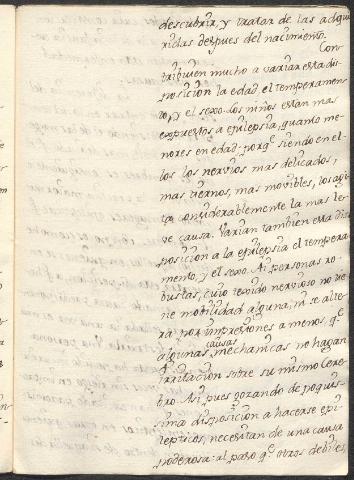 descubrir, y tratar de las adqui
ridas despues del nacimiento.
Con
tribuien mucho a variar esta dis
posicion la edad el temperamen
to, y el sexo. Los niños estan mas
expuestos a epilepsia, quanto me
nores en edad: porqe. siendo en el
los los nervios mas delicados,
mas tiernos, mas movibles, los agi
ta considerablemente la mas le
ve causa. Varian tambien esta dis
posicion a la epilepsia el tempera
mento, y el sexo. Ai personas ro
bustas, cuio tegido nervioso no tie
ne mobilidad alguna, ni se alte
ra por impresiones a menos, qe.
algunas causas mechanicas no hagan
irritacion sobre su mismo Cere
bro. Asi pues gozando de poquis
sima disposicion a hacerse epi
lepticos, necesitan de una causa
poderosa: al paso qe. otros debiles,